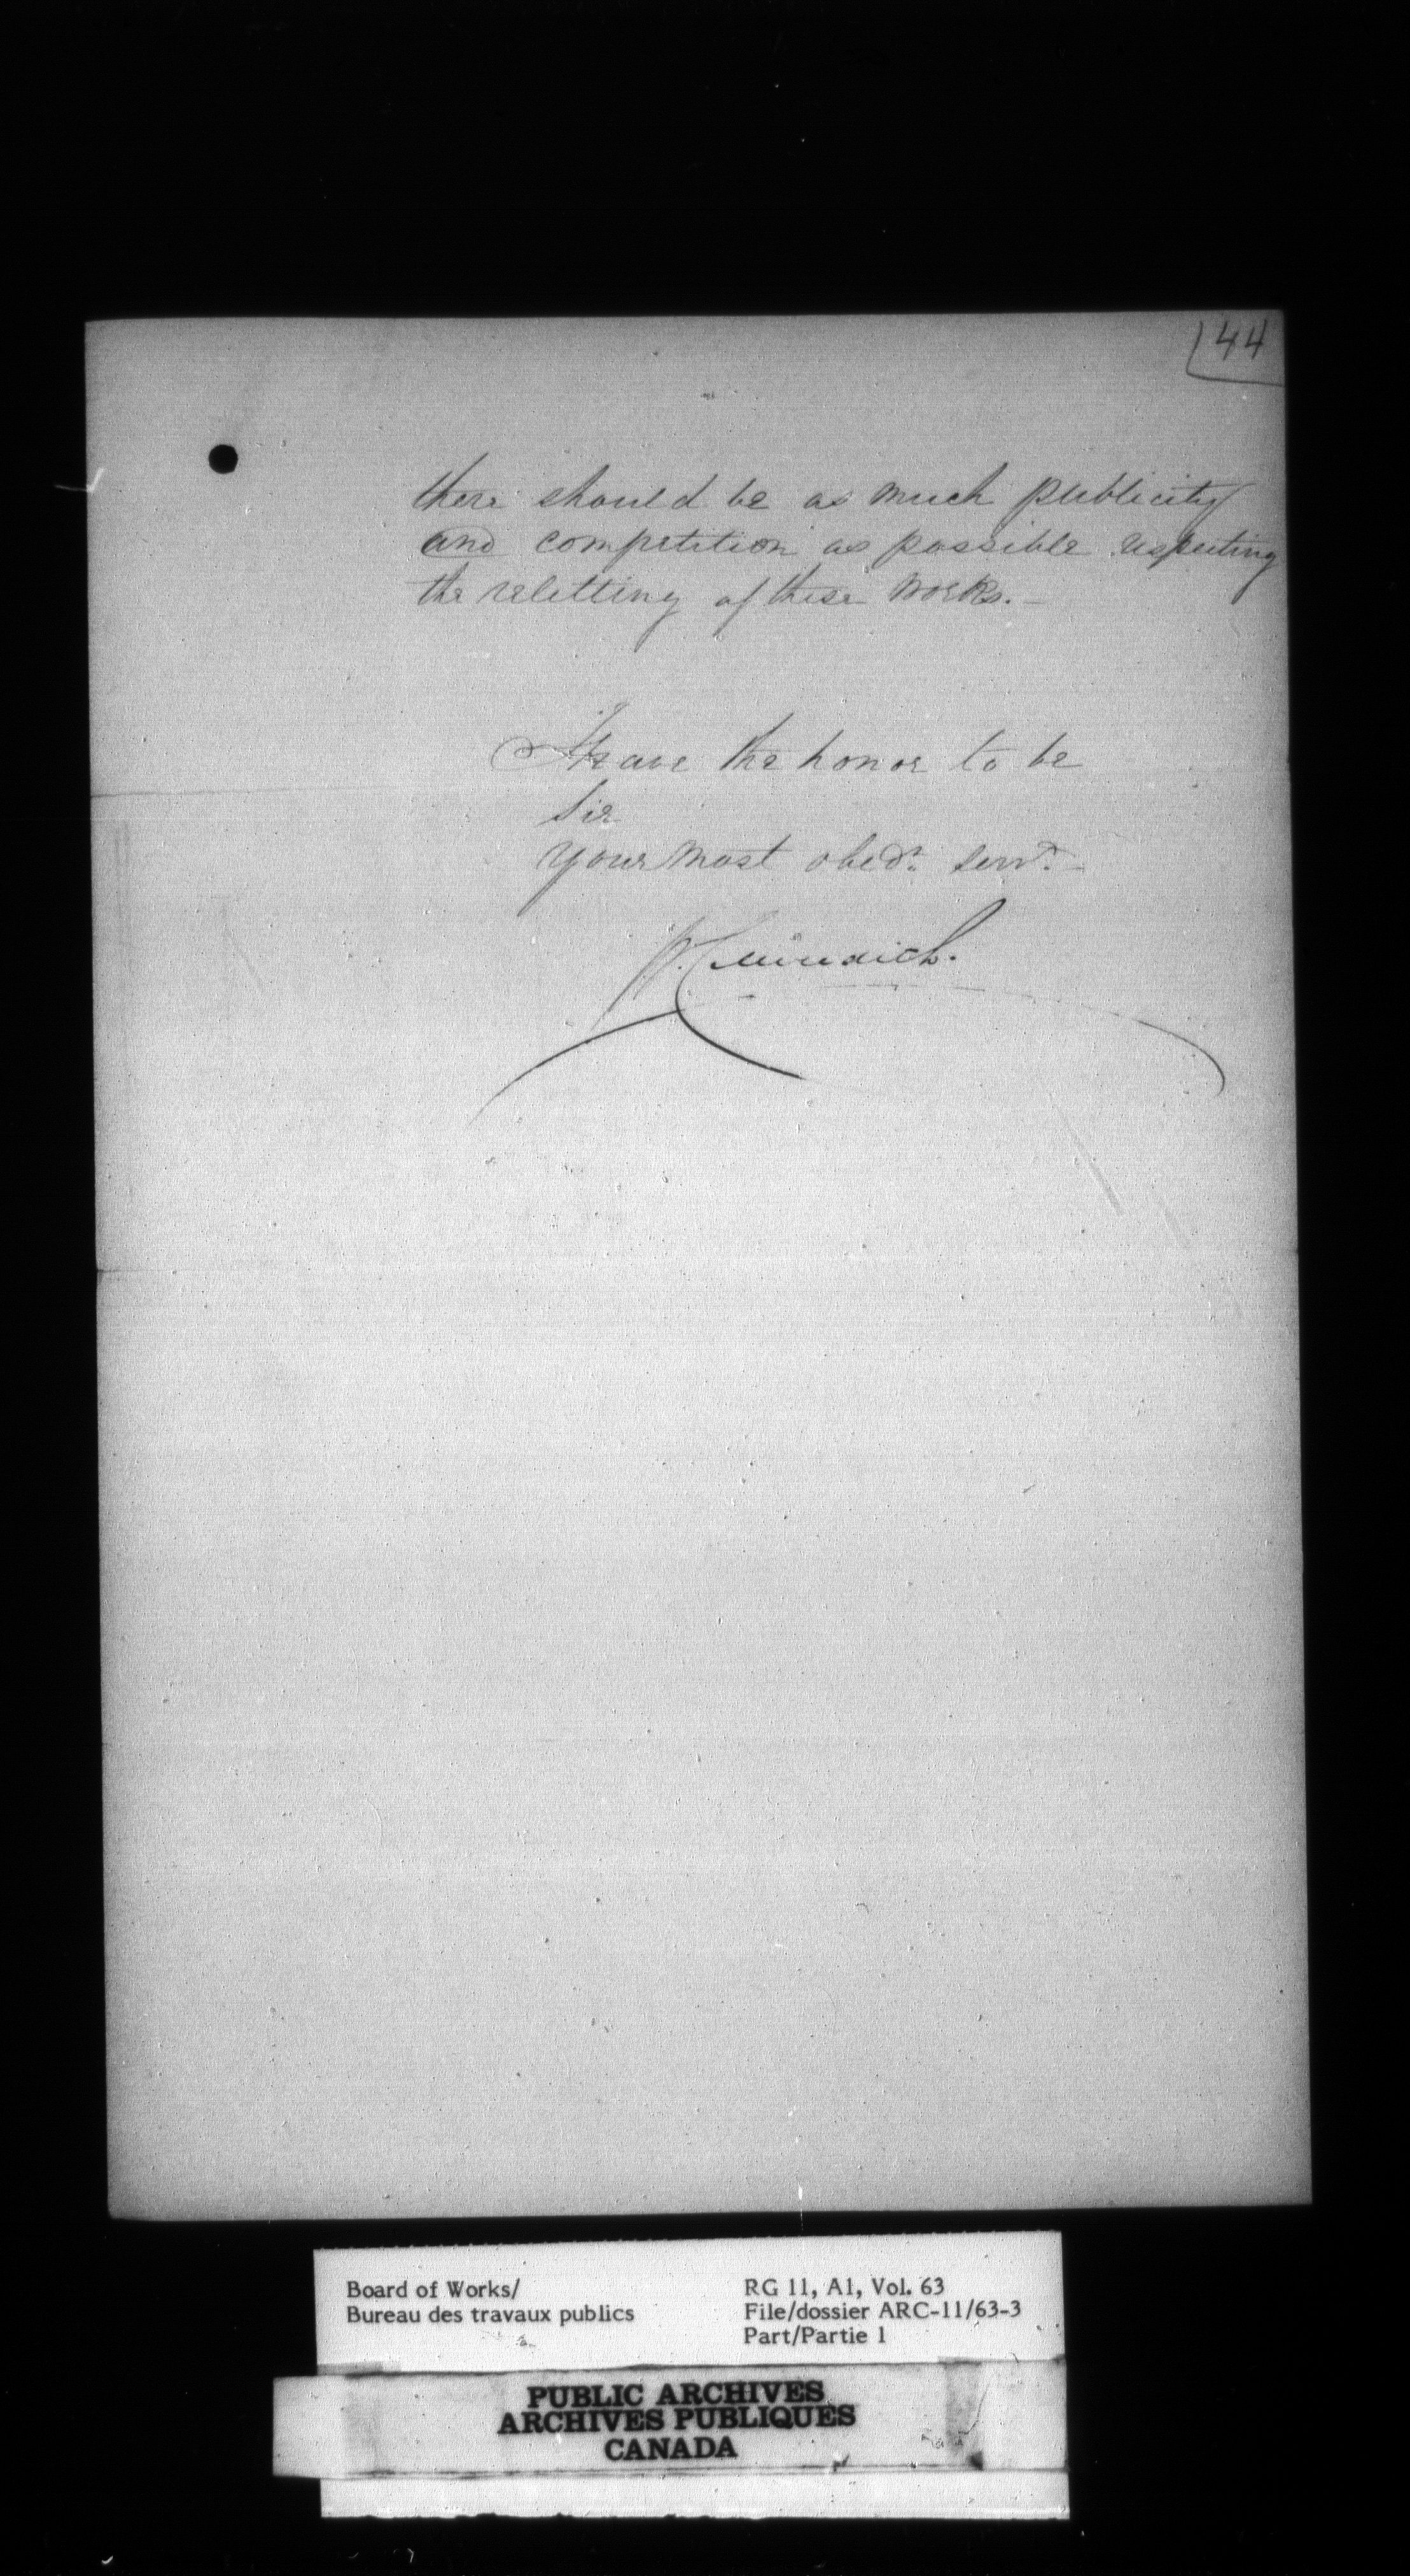 44
there should be as much publicity
and competition as possible respecting
the reletting of these works. —
I have the honor to be
Sir
your most obedt. servt. —
Board of Works/
Bureau des travaux publics
RG 11, A1, Vol. 63
File/dossier ARC-11/63-3
Part/Partie 1
PUBLIC ARCHIVES
ARCHIVES PUBLIQUES
CANADA